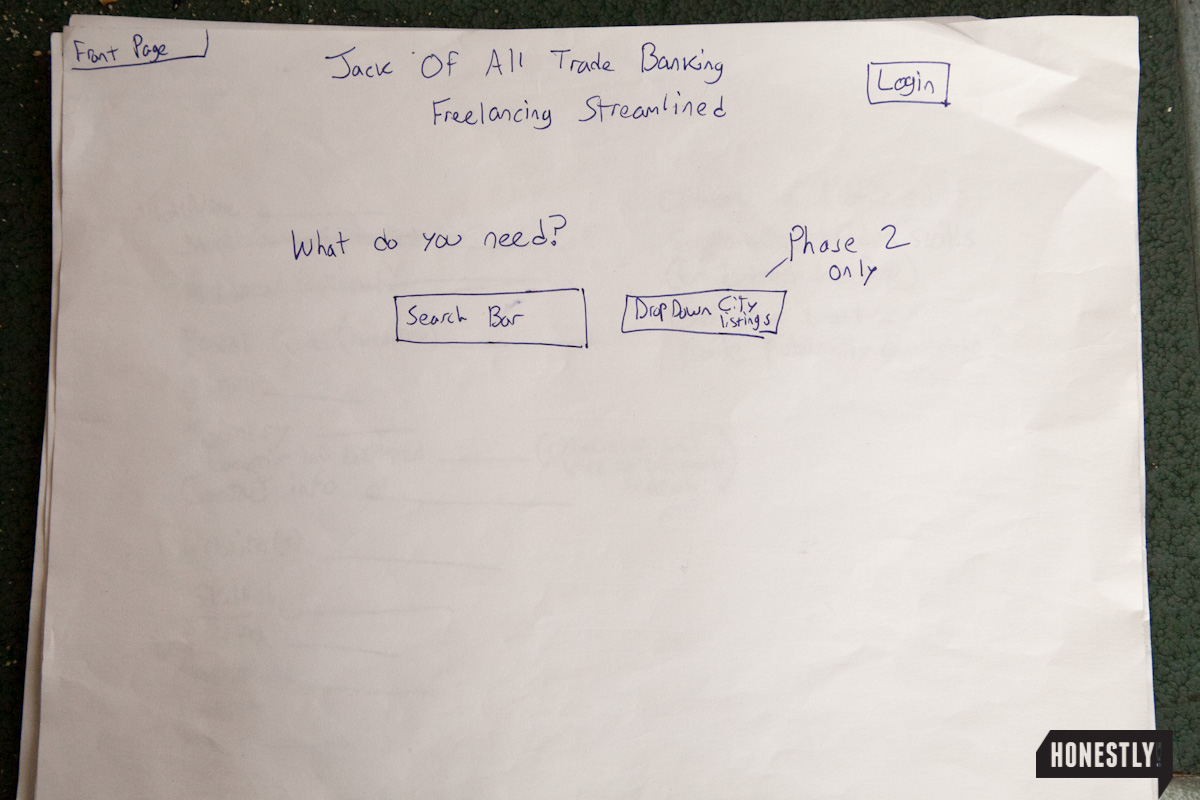 Front Page
Jack Of All Trade Banking
Login
Freelancing Streamlined
What do you need?
Phase 2
only
Search Bar
Drop Down City
listings
HONESTLY